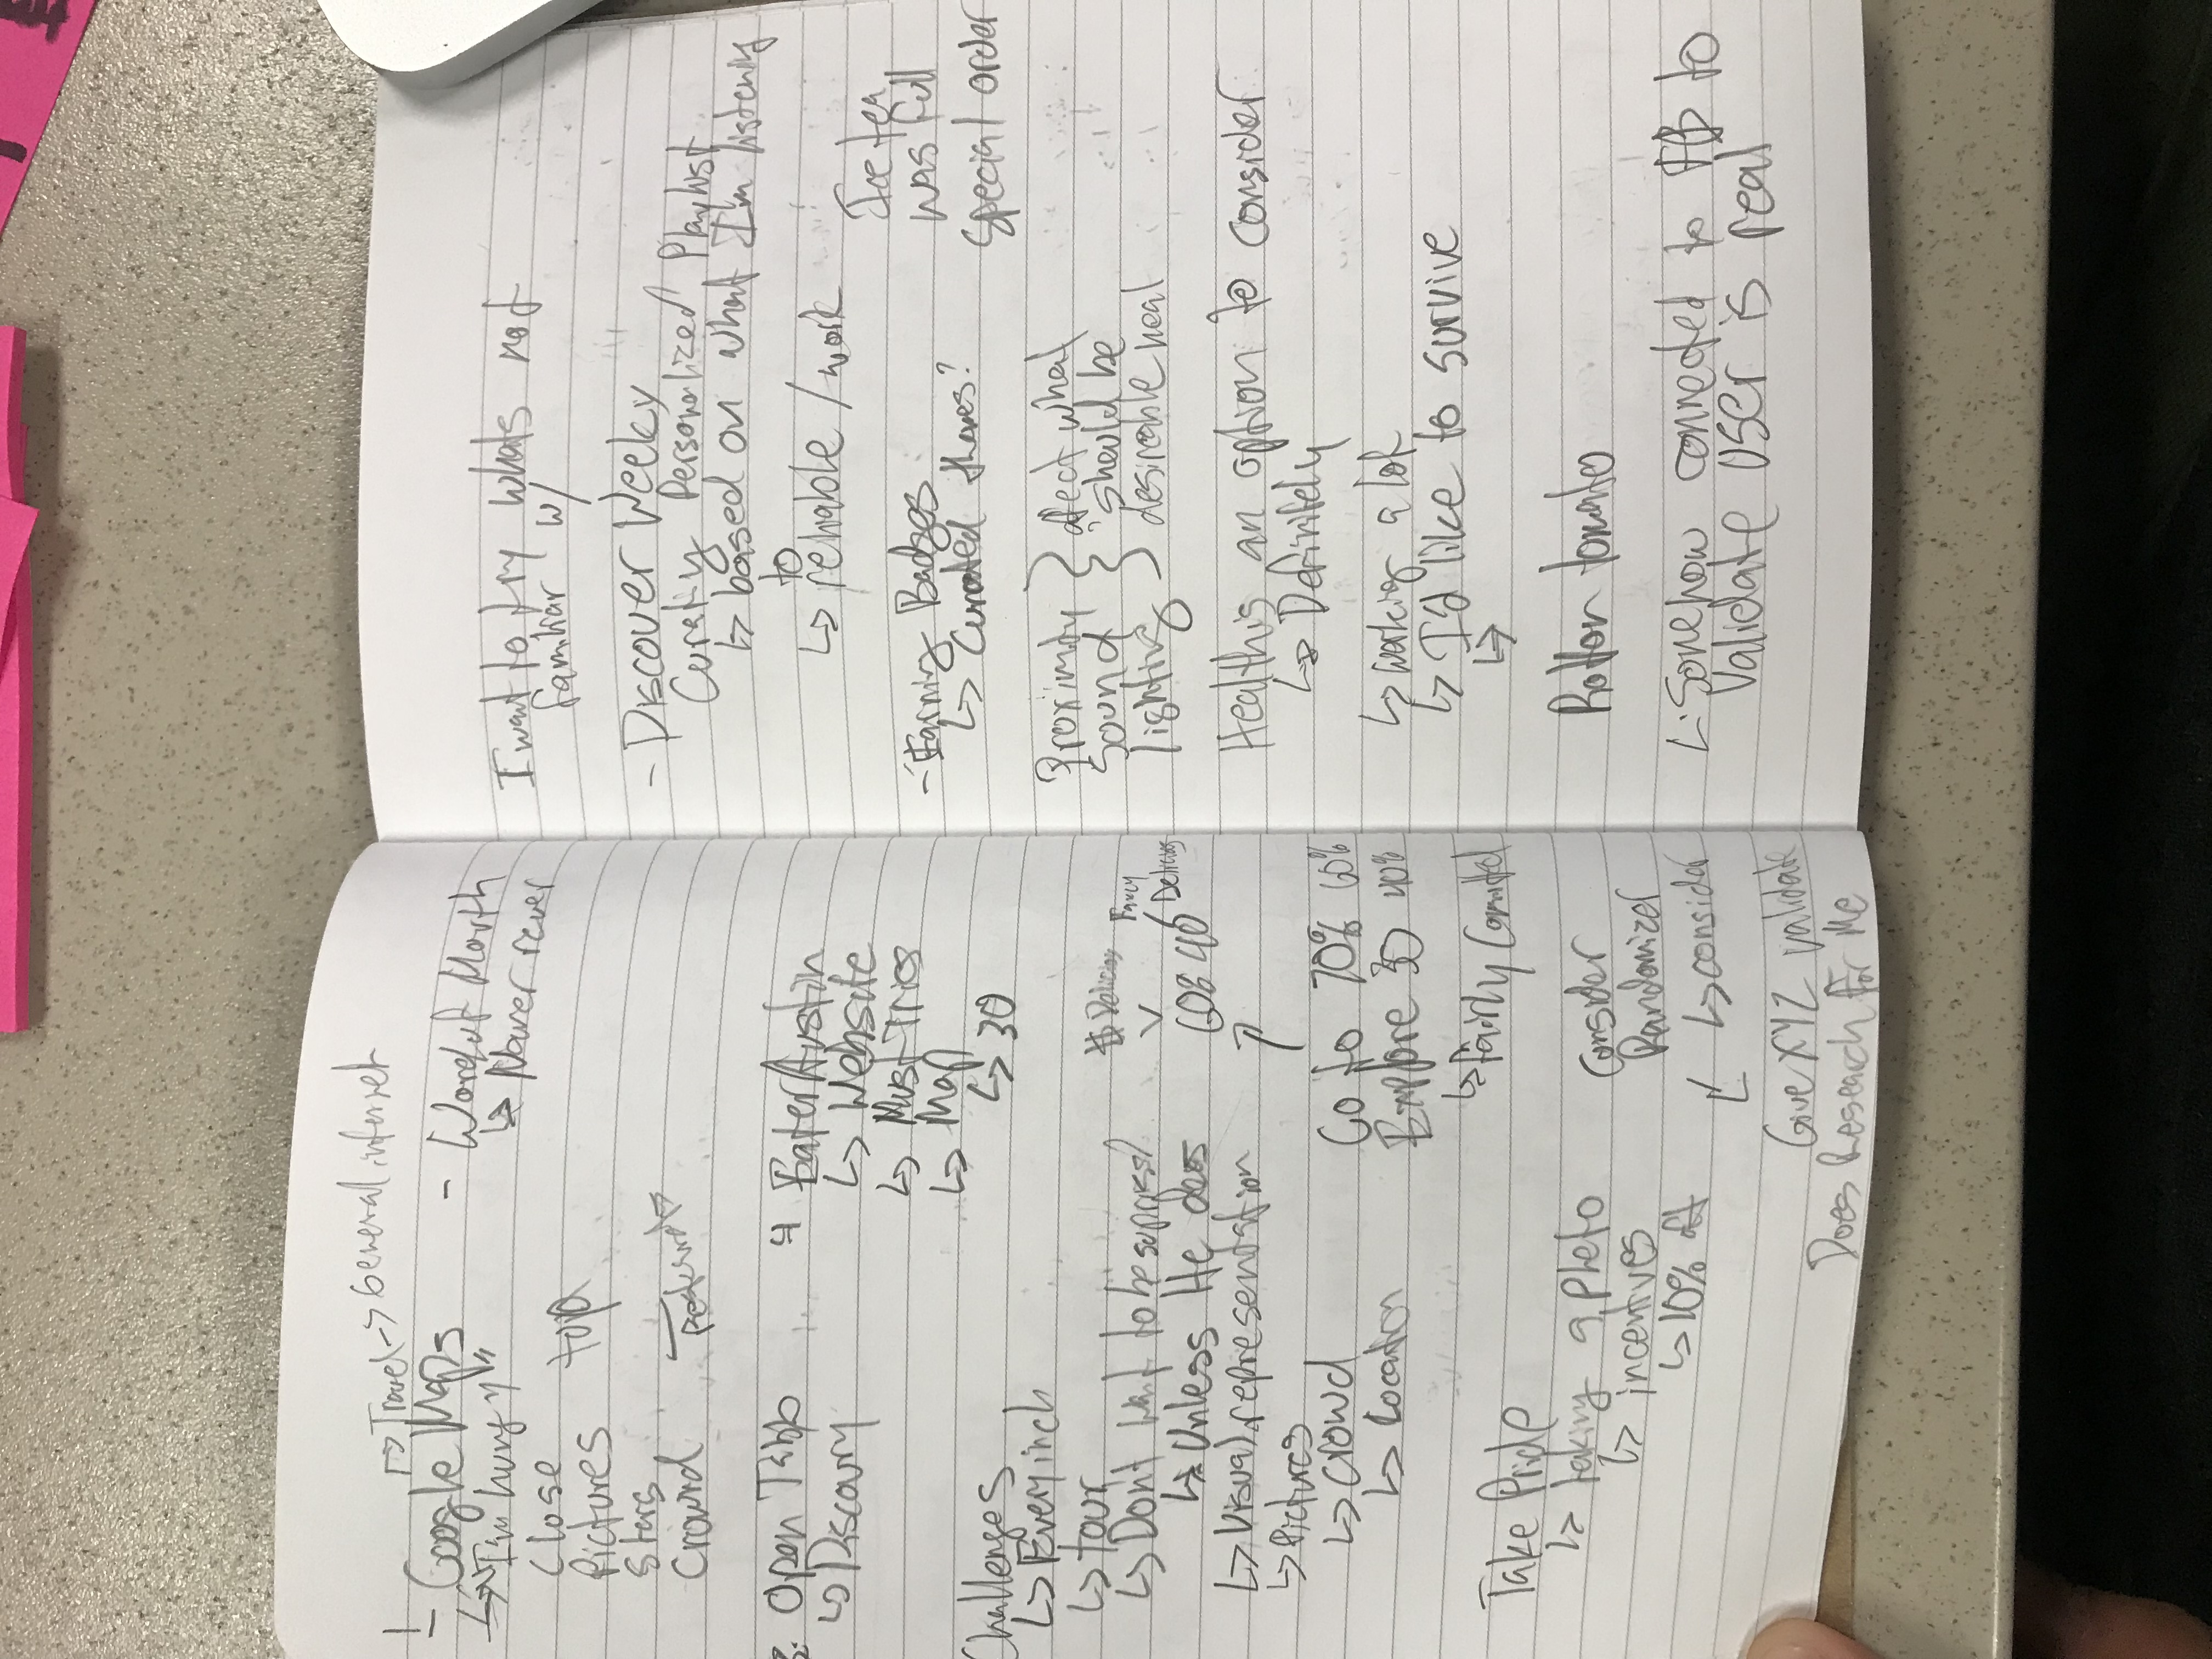 Travel -> General internet
- Google Maps
"I'm hungry"
Close
Pictures
Stars
Crowd
top
- Word of Mouth
Never
3. Open Table
Discovry
4 Eater Austin
Website
Must Tries
Map
30
Challenges
Every inch
tour
Dont want to be
Unless He does
Visual representation
Pictures
Crowd
Location
$ Delicious
Fancy
Delicious
60% 40
Go to 70% 60%
Explore 30 40%
fairly
Take Pride
taking a photo
incentives
10% off
Consider
Randomizer
consider
Give XYZ validate
Does Research For Me
I want to try whats not
familiar w/
- Discover Weeky
Personalized Playlist
based on what I'm listening
to
reliable / work
Ice tea
was full
special order
- Earning Badges
Curated
Proximity
Sound
lighting
afect what
should be
desireable meal
Health is an option to consider
Definitely
working a lot
I'd like to survive
Rotton tomato
Somehow connected to FB to
Validate user is real